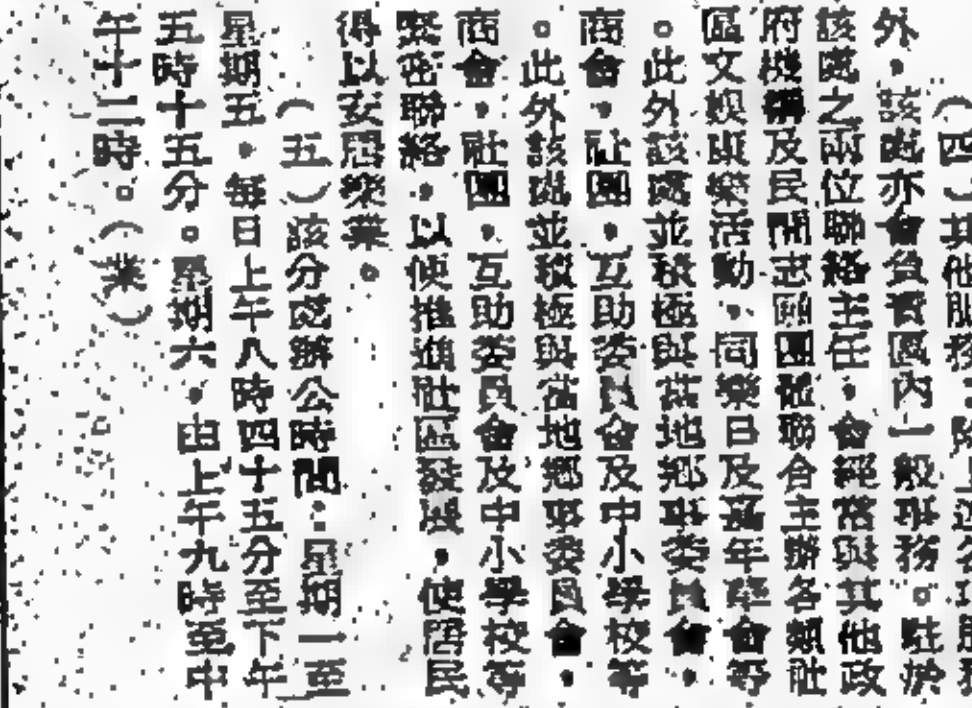 （四）其他服務：除上述各項服務
外，該處亦會負責區內一般事務。駐於
該處之兩位聯絡主任，會經常與其他政
府機構及民間志願團體聯合主辦各類社
區文娛康樂活動，同樂日及嘉年華會等
。此外該處並積極與當地鄉事委員會，
商會，社團，互助委員會及中小學校等
。此外該處並積極與當地鄉事委員會，
商會，社團，互助委員會及中小學校等
緊密聯絡，以便推進社區發展，使居民
得以安居樂業。
（五）該分處辦公時間：星期一至
星期五，每日上午八時四十五分至下午
五時十五分。星期六，由上午九時至中
午十二時。（業）